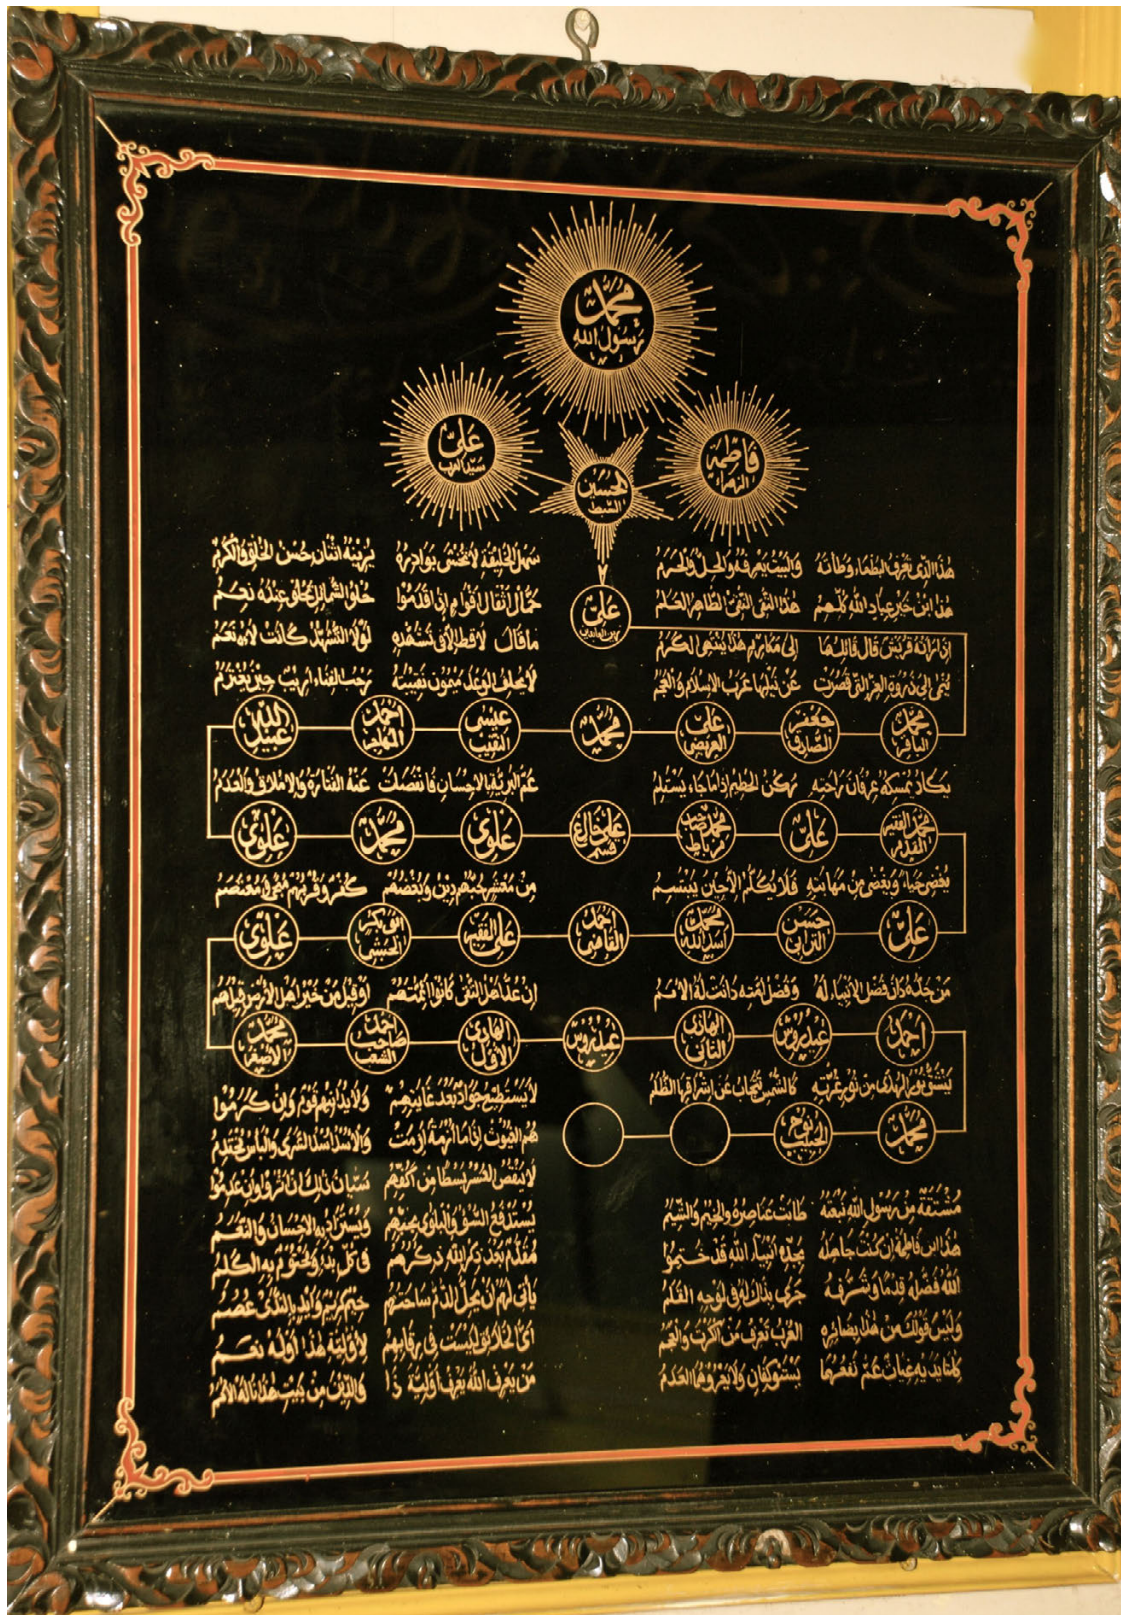 محمد
رسول الله
علي
سيد العرب
فاطمة
الزهراء
الحسين
السبط
علي
زين العابدين
هذا الذى تعرف البطحاء وطأته والبيت يعرفه والحل والحرم
هذا ابن خير عباد الله كلهم هذا التقى النقى الطاهر العلم
اذا رأته قريش قال قائلها الى مكارم هذا ينتهى الكرم
ينمى الى ذروة العز التى قصرت عن نيلها عرب الاسلام والعجم
سهل الخليقة لا تخشى بوادره يزينه اثنان حسن الخلق والكرم
حمال اثقال اقوام اذا قدموا حلو الشمائل تحلو عنده نعم
ما قال لا قط الا فى تشهده لولا التشهد كانت لاءه نعم
لا يخلف الوعد ميمون نقيبته رحب الفناء اريب حين يعتزم
محمد الباقر
جعفر الصادق
على العريضى
محمد
عيسى النقيب
احمد المهاجر
عبيد الله
يكاد يمسكه عرفان راحته ركن الحطيم اذا ما جاء يستلم
عم البرية بالاحسان فانقصلت عنه الغيارة والاملاق والعدم
محمد الفقيه المقدم
علي
محمد صاحب مرباط
على خالع قسم
علوي
محمد
علوي
يغضى حياء ويغضى من مهابته فلا يكلم الا حين يبتسم
من معشر حبهم دين وبغضهم كفر وقربهم منجى ومعتصم
علي
حسن الترابى
محمد اسد الله
احمد القاضى
على الفقيه
ابو بكر الحبشى
علوي
من جده دان فضل الانبياء له وفضل امته دانت له الامم
ان عد اهل التقى كانوا ائمتهم او قيل من خير اهل الارض قيل هم
احمد
عيدروس
الهادى الثانى
عيدروس
الهادى الاول
احمد صاحب الشعب
محمد الاصغر
ينشق نور الهدى من نور غرته كالشمس تنجاب عن اشراقها الظلم
محمد
الحبيب نوح
لا يستطيع جواد بعد غايتهم ولا يدانيهم قوم وان كرموا
هم الغيوث اذا ما ازمة ازمت والاسد اسد الشرى والبأس محتدم
لا ينقص العسر بسطا من اكفهم سيان ذلك ان اثروا وان عدموا
يستدفع السوء والبلوى بحبهم ويستزاد به الاحسان والنعم
مقدم بعد ذكر الله ذكرهم فى كل بدء ومختوم به الكلم
يأبى لهم ان يحل الذم ساحتهم خيم كريم وايد بالندى عصم
اى الخلائق ليست فى رقابهم لاولية هذا اوله نعم
من يعرف الله يعرف اولية ذا والدين من بيت هذا ناله الامم
مشتقة من رسول الله نبعته طابت عناصره والخيم والشيم
هذا ابن فاطمة ان كنت جاهله بجده انبياء الله قد ختموا
الله فضله قدما وشرفه جرى بذاك له فى لوحه القلم
وليس قولك من هذا بضائره العرب تعرف من انكرت والعجم
كلتا يديه غياث عم نفعهما يستوكفان ولا يعروهما العدم